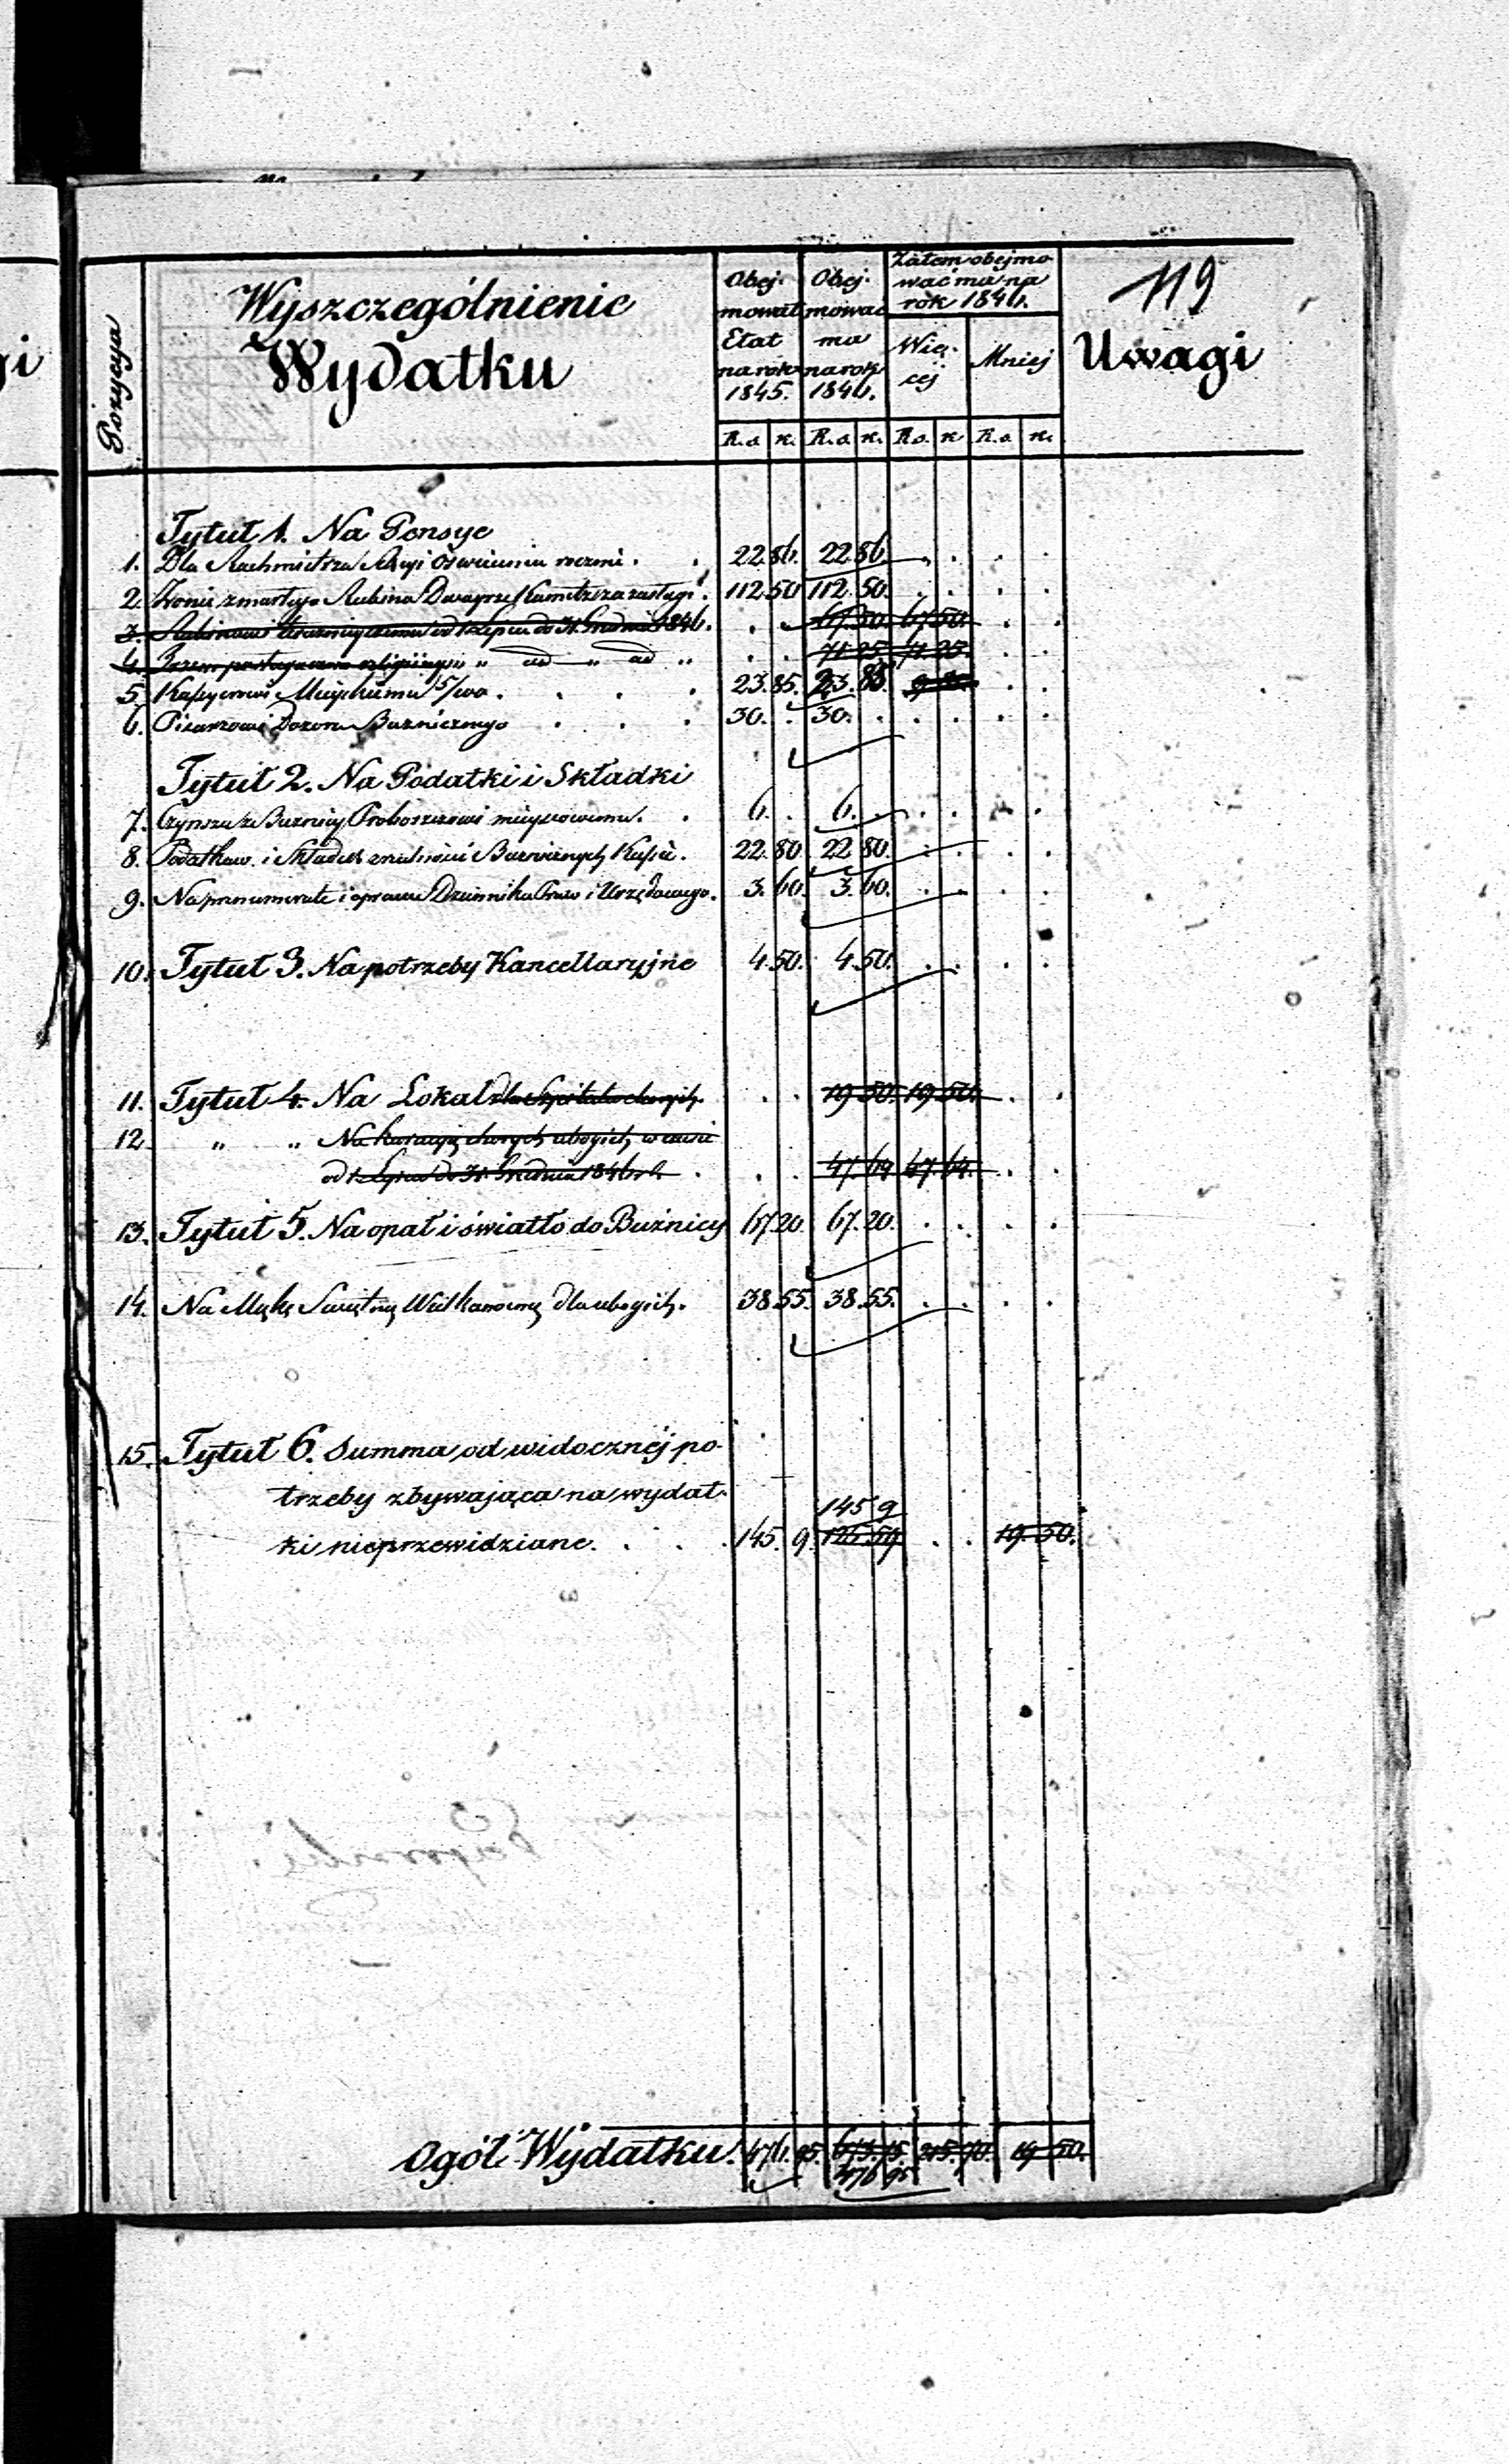 119
Pozycya
Wyszczególnienie
Wydatku
Obej-
mował
Etat
na rok
1845.
Obej-
mować
ma
na rok
1846.
Zatem obejmo
wać ma na
rok 1846.
Wię-
cej
Mniej
Uwagi
R.s. k. R.s. k. R.s. k. R.s. k.
Tytuł 1. Na Pensye
1. Dla Rachmistrza Sekcyi Oświecenia rocznie . . 22 86. 22 86. . . . .
2. Żonie zmarłego Rabina za zasługi . 112 50 112 50. . . . .
3. Rabinowi od 1 Lipca do 31 Grudnia 1846. . . 67.50. 67.50. . .
4. " od " ad " . . 71.25 71.25. . .
5. Kassyerowi Mieyskiemu 5/100 . . . . 23.85. 23.85. . .
6. Pisarzowi Dozoru Bużniczego . . . 30. . 30. . . . . .
Tytuł 2. Na Podatki i Składki
7. Czynszu z Bużnicy Proboszczowi mieyscowemu. . 6. . 6. . . . . .
8. Podatków i Składek Bużniczych Kassie. 22.80 22 80. . . . .
9. Na prenumeratę i oprawę Dziennika Praw i Urzędowego. 3.60. 3.60. . . . .
10. Tytuł 3. Na potrzeby Kancellaryjne 4.50. 4.50. . . . .
11. Tytuł 4. Na Lokal dla Szpitala chorych. . . 19 50. 19 50. . .
12. " " Na kuracyę chorych ubogich w czasie
od 1 Lipca do 31 Grudnia 1846 r. . . . 47.64 47.64. . .
13. Tytuł 5. Na opał i światło do Bużnicy 67.20. 67.20. . . . .
14. Na Mąkę Wielkanocną dla ubogich. 38.55. 38.55. . . . .
15. Tytuł 6. Summa od widocznéj po-
trzeby zbywająca na wydat-
145 9
ki nieprzewidziane. . . . 145. 9. 125 59 . . 19.50.
Ogół Wydatku. 476. 95. 673. 15. 215. 70. 19 50.
476 95